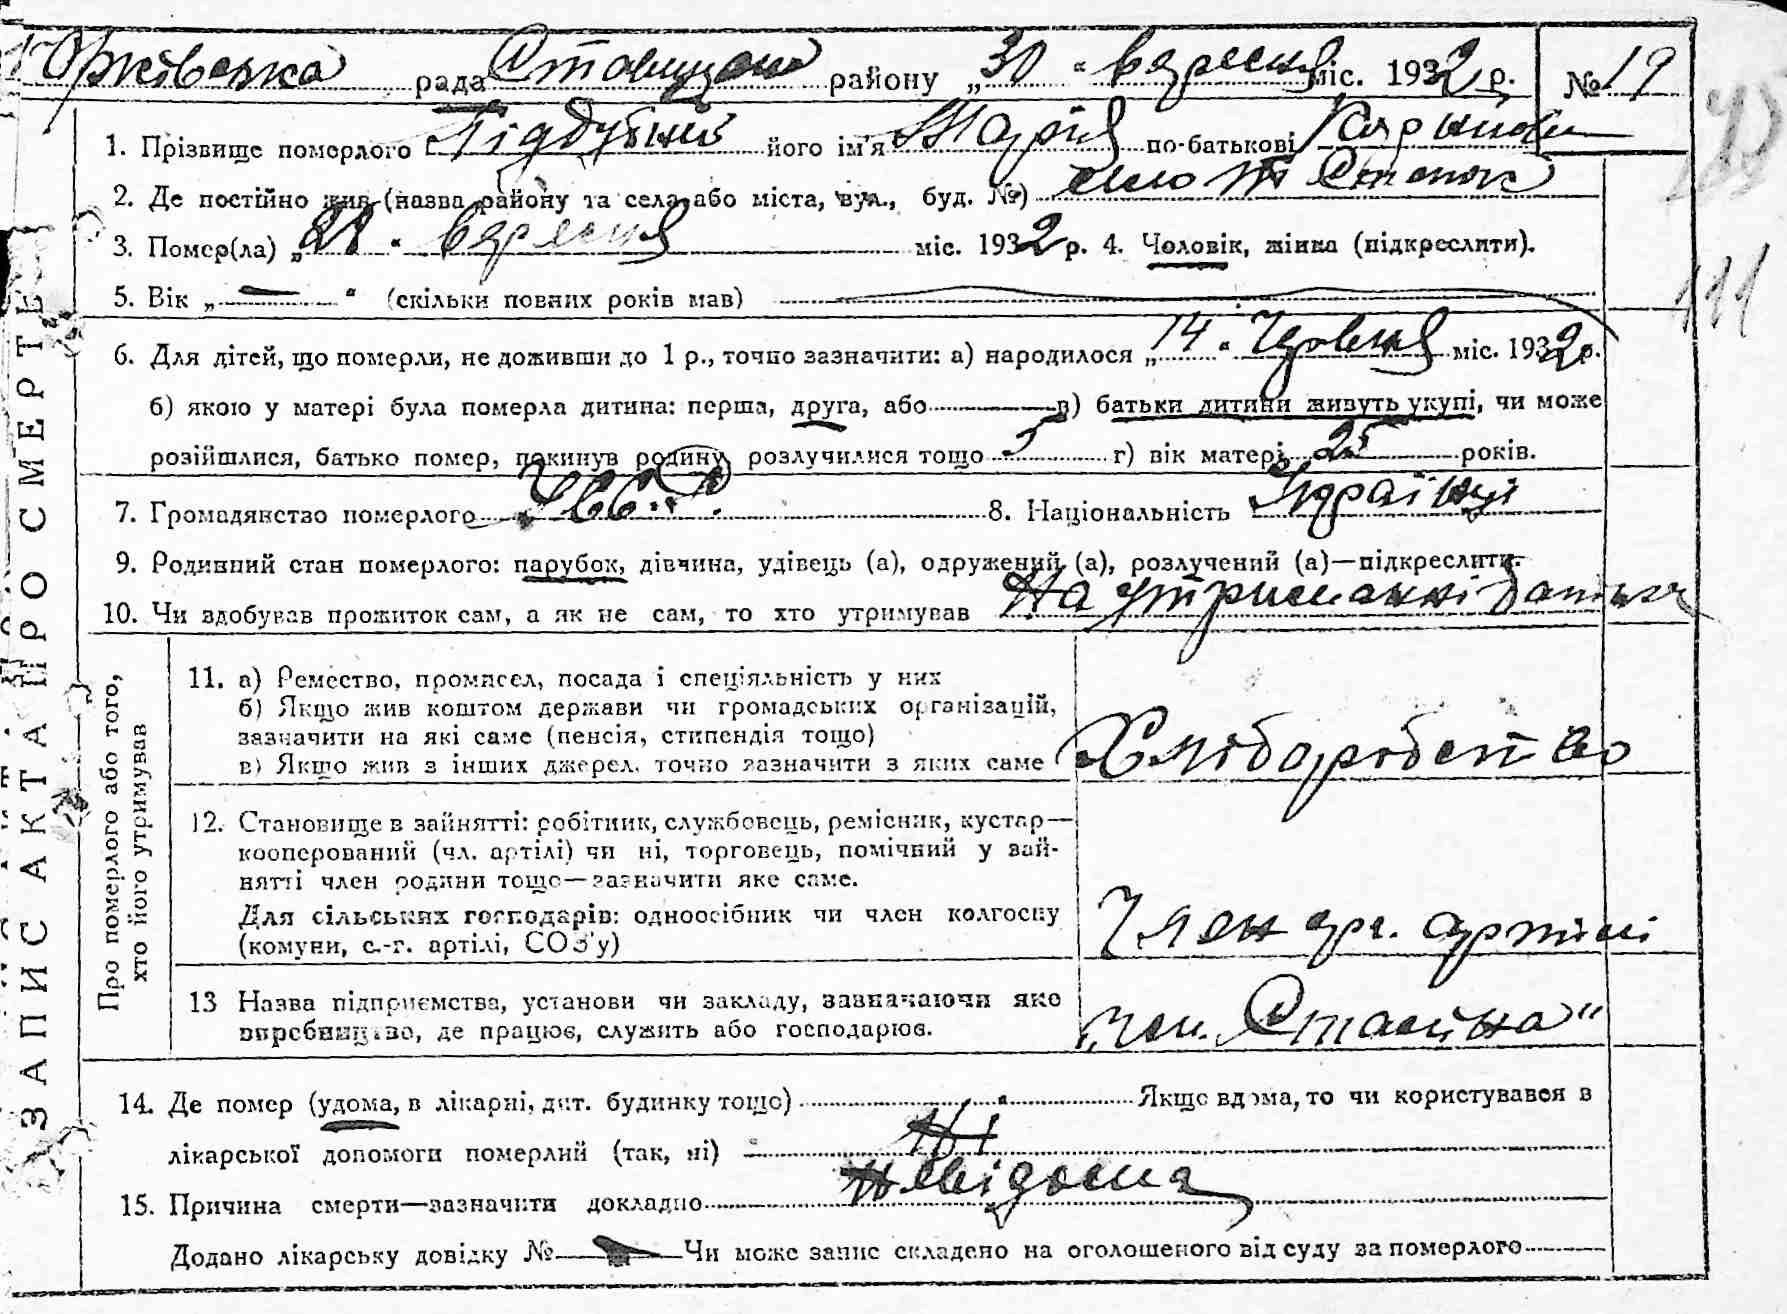 рада Ставищан району „30“ вересня міс. 1932 р. № 19
1. Прізвище померлого Піддубний його ім'я Марія по-батькові
2. Де постійно жив (назва району та села або міста, вул., буд. №) село
3. Помер(ла) „28“ вересня міс. 1932 р. 4. Чоловік, жінка (підкреслити).
5. Вік „ — “ (скільки повних років мав)
6. Для дітей, що померли, не доживши до 1 р., точно зазначити: а) народилося „14“ Червня міс. 1932 р.
б) якою у матері була померла дитина: перша, друга, або — в) батьки дитини живуть укупі, чи може
розійшлися, батько помер, покинув родину, розлучилися тощо г) вік матері 25 років.
7. Громадянство померлого 8. Національність Українці
9. Родинний стан померлого: парубок, дівчина, удівець (а), одружений (а), розлучений (а)—підкреслити.
10. Чи здобував прожиток сам, а як не сам, то хто утримував На утриманні батька
ЗАПИС АКТА ПРО СМЕРТЬ
Про померлого або того,
хто його утримував
11. а) Ремество, промисел, посада і спеціяльність у них
б) Якщо жив коштом держави чи громадських організацій,
зазначити на які саме (пенсія, стипендія тощо)
в) Якщо жив з інших джерел, точно зазначити з яких саме
Хліборобство
12. Становище в зайнятті: робітник, службовець, ремісник, кустар—
кооперований (чл. артілі) чи ні, торговець, помічний у зай-
нятті член родини тощо—зазначити яке саме.
Для сільських господарів: одноосібник чи член колгоспу
(комуни, с.-г. артілі, СОЗ'у)
Член арт. артілі
13 Назва підприємства, установи чи закладу, зазначаючи яке
виробництво, де працює, служить або господарює.
„Ім. Сталіна“
14. Де помер (удома, в лікарні, дит. будинку тощо) Якщо вдома, то чи користувався в
лікарської допомоги померлий (так, ні) Ні
15. Причина смерти—зазначити докладно невідома
Додано лікарську довідку № — Чи може запис складено на оголошеного від суду за померлого